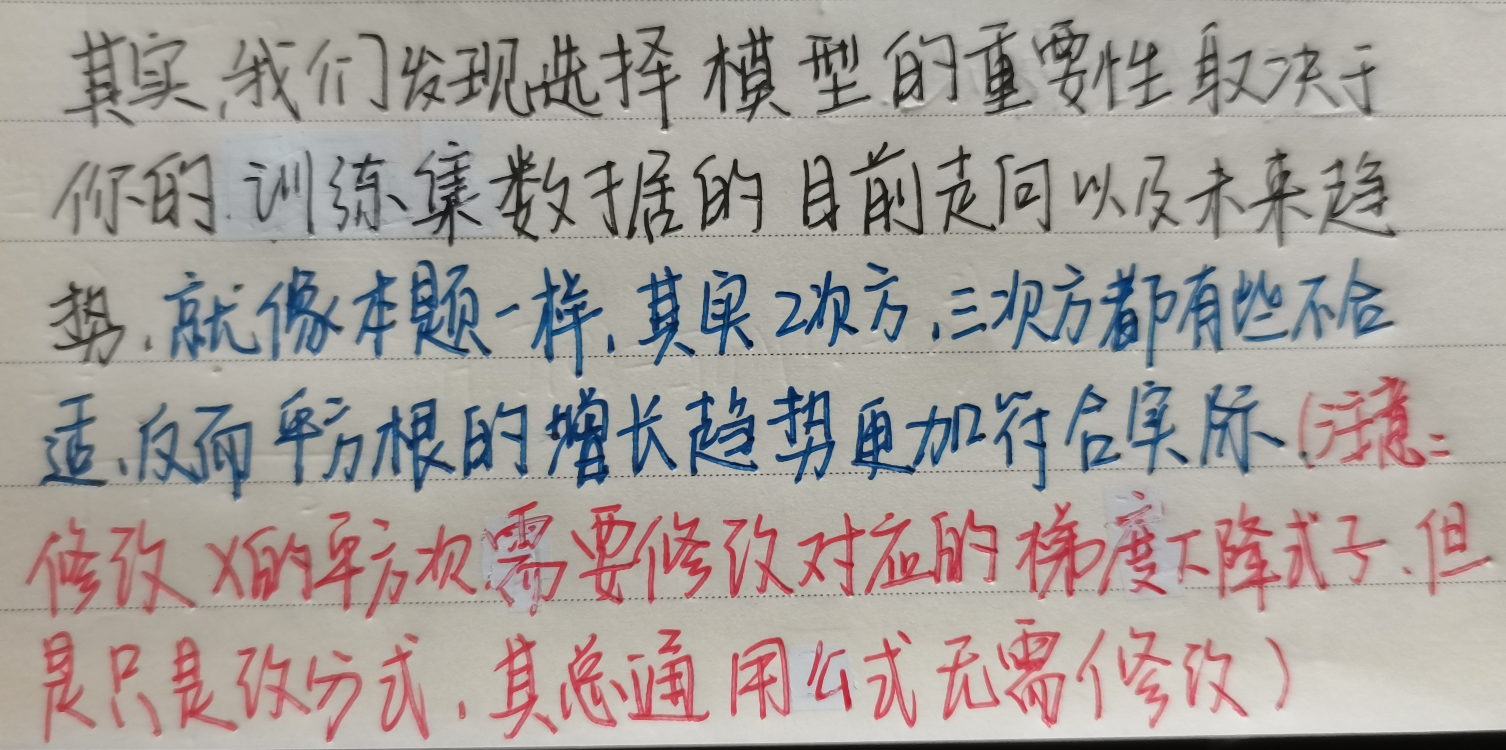 其实,我们发现选择模型的重要性取决于
你的训练集数据的目前走向以及未来趋
势,就像本题一样,其实2次方,三次方都有些不合
适,反而平方根的增长趋势更加符合实际(注意:
修改X的平方次需要修改对应的梯度下降式子,但
是只是改分式,其总通用公式无需修改)